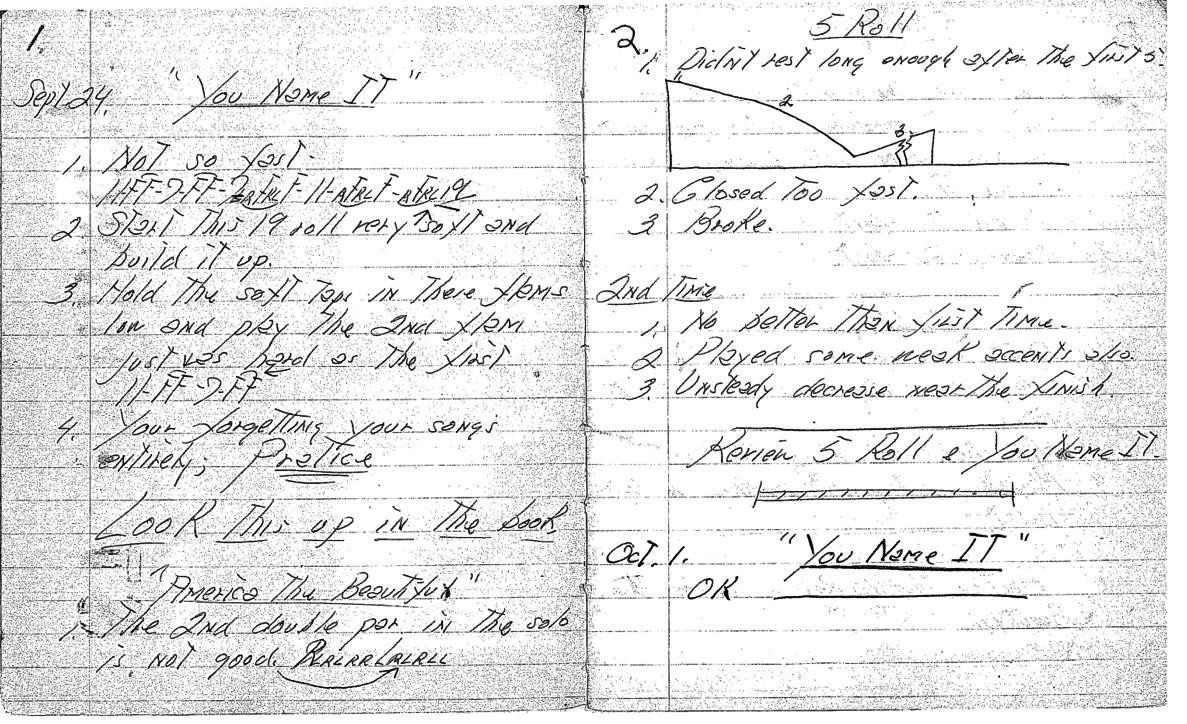 1.
Sept. 24. "You Name IT"
1. Not so fast.
11-FF-7-FF-
2. Start This 19 roll very soft and
build it up.
3. Hold The soft Taps in These flams
low and play The 2nd flam
just as hard as The first
11-FF-7-FF
4. Your forgetting your songs
entirely; Pratice
Look This up in The book
"America The Beautiful"
1. The 2nd double par in The solo
is not good. RLRLRRLRLRLL
2. 5 Roll
1. Didn't rest long enough after The first 5.
1
2
3
2. Closed Too fast.
3. Broke.
2nd Time
1. No better Than first Time.
2. Played some weak accents also.
3. Unsteady decrease near The finish.
Review 5 Roll & You Name IT.
Oct. 1. "You Name IT"
OK